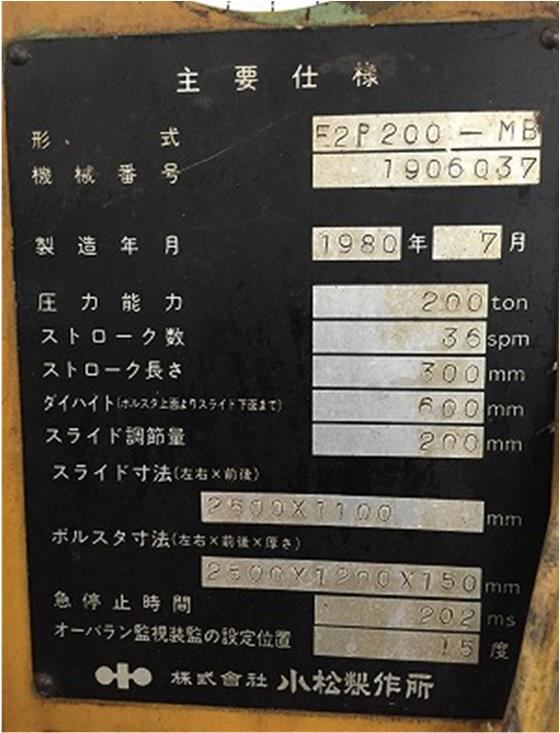 主要仕様
形式 E2P200-MB
機械番号 1906037
製造年月 1980年 7月
圧力能力 200 ton
ストローク数 36 spm
ストローク長さ 300 mm
ダイハイト(ボルスタ上面よりスライド下面まで) 600 mm
スライド調節量 200 mm
スライド寸法(左右×前後)
2500X1100 mm
ボルスタ寸法(左右×前後×厚さ)
2500X1200X150 mm
急停止時間 202 ms
オーバラン監視装置の設定位置 15 度
株式會社 小松製作所